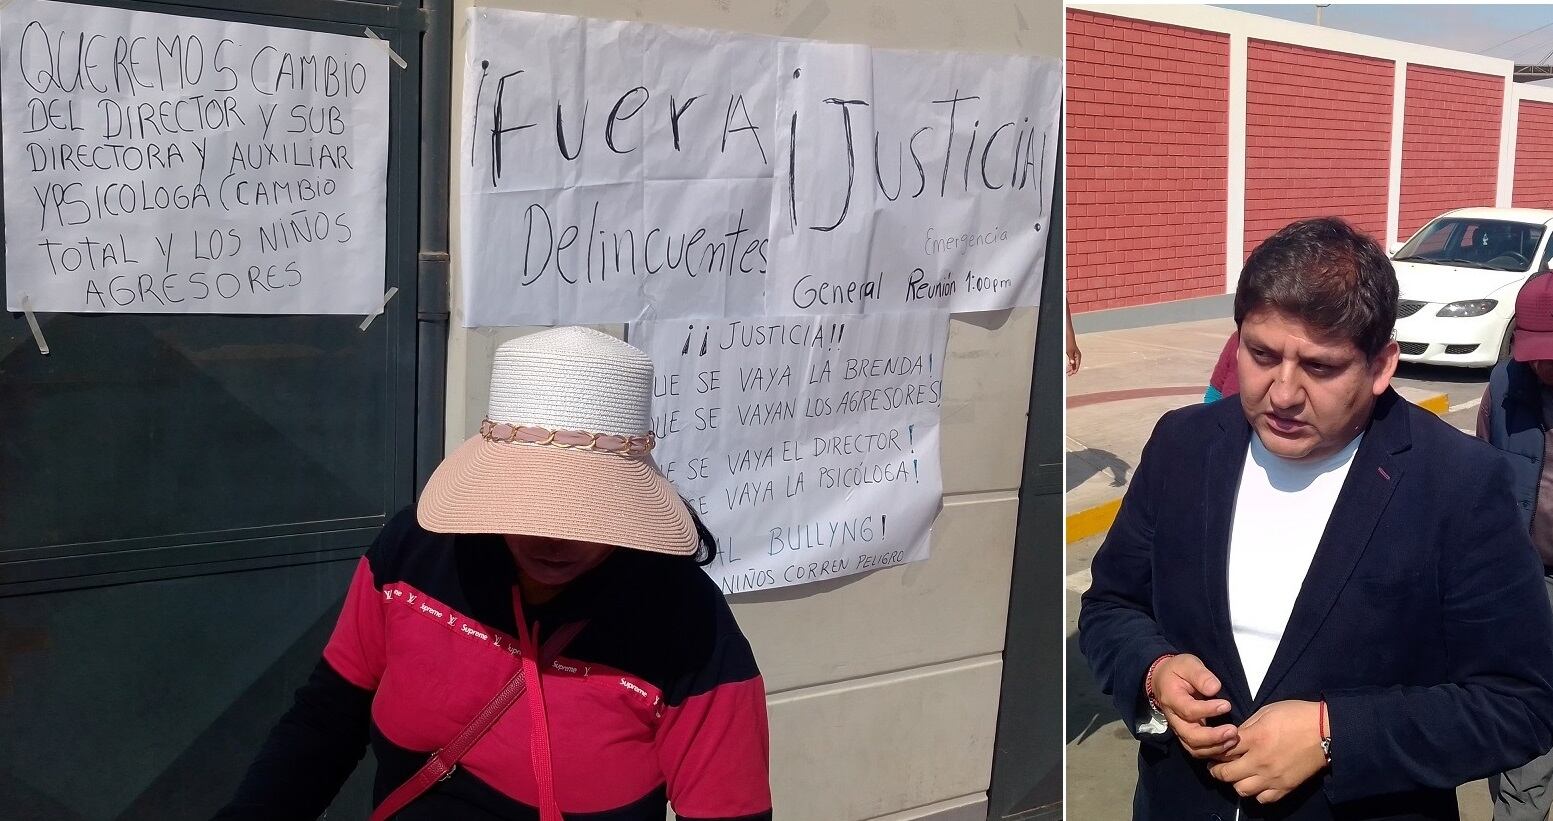 QUEREMOS CAMBIO
DEL DIRECTOR Y SUB
DIRECTORA Y AUXILIAR
Y PSICOLOGA (CAMBIO
TOTAL Y LOS NIÑOS
AGRESORES
¡Fuera
Delincuentes
¡Justicia!
Emergencia
General Reunión 1:00pm
¡¡JUSTICIA!!
UE SE VAYA LA BRENDA!
UE SE VAYAN LOS AGRESORES!
E SE VAYA EL DIRECTOR!
E VAYA LA PSICÓLOGA!
AL BULLYNG!
NIÑOS CORREN PELIGRO
Supreme Supreme Supreme Supreme Supreme